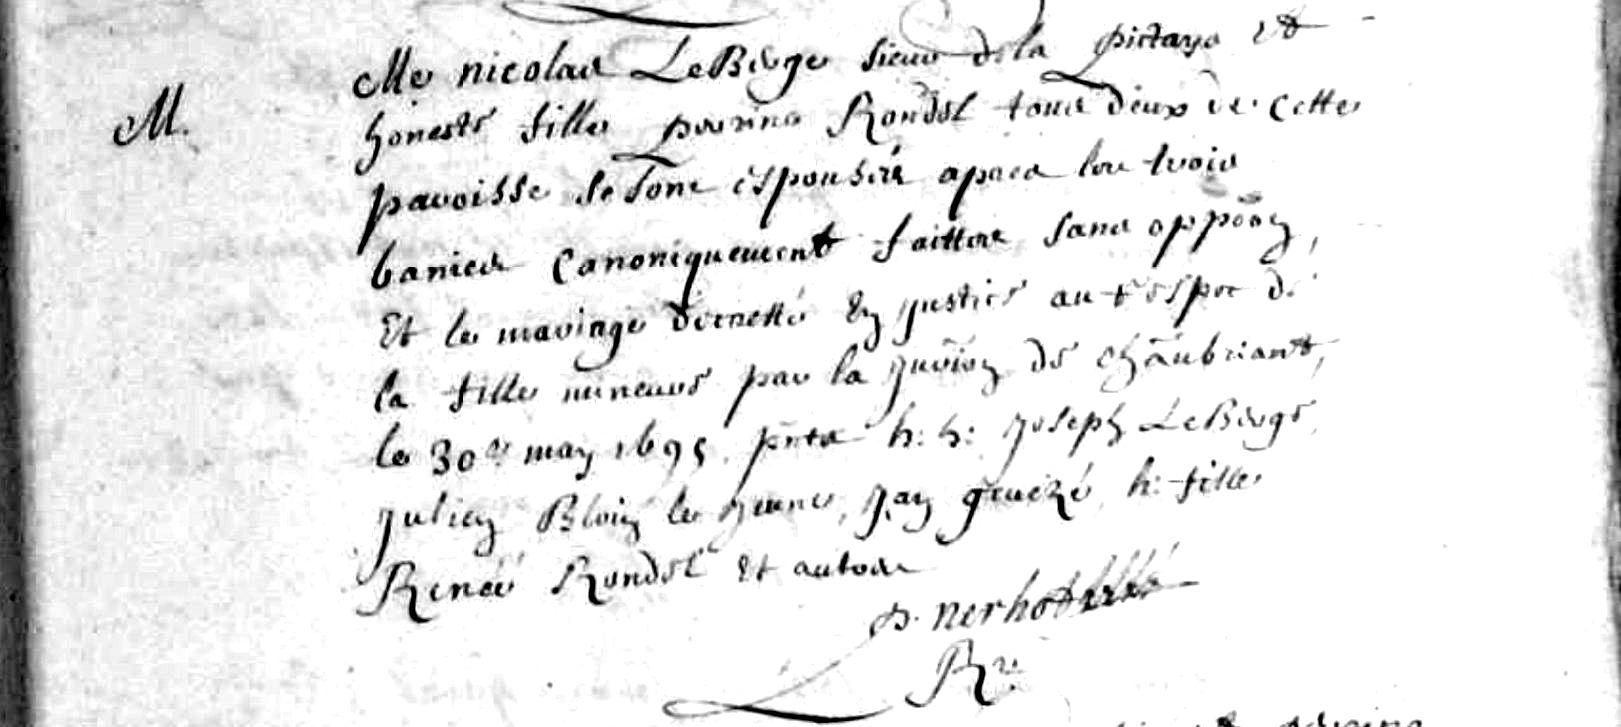 M.
Me nicolas LeBerge sieur de la pictays et
honeste fille perrine Rondel tous deux de cette
paroisse se sont espousés apres les trois
banies canoniquement faittes sans oppoōn,
Et le mariage decretté En justice au respec de
la fille mineure par la jurion de chāubriant,
le 30e may 1695. pnts h: h: joseph LeBerge,
julien Bloin le jeune, jan gruezé, h: fille
Renée Rondel Et autres
Rr.